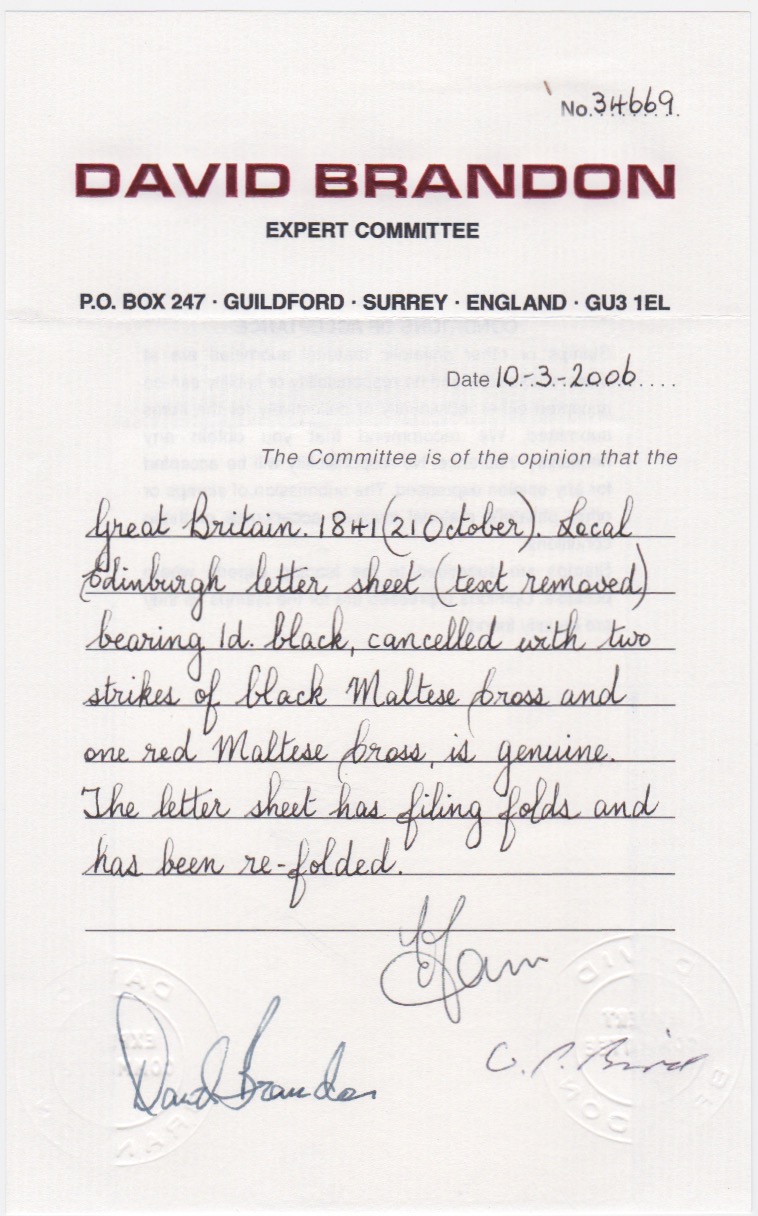 No. 34669
DAVID BRANDON
EXPERT COMMITTEE
P.O. BOX 247 · GUILDFORD · SURREY · ENGLAND · GU3 1EL
Date 10-3-2006
The Committee is of the opinion that the
Great Britain. 1841 (21 October). Local
Edinburgh letter sheet (text removed)
bearing 1d. black, cancelled with two
strikes of black Maltese Cross and
one red Maltese Cross, is genuine.
The letter sheet has filing folds and
has been re-folded.
David Brandon